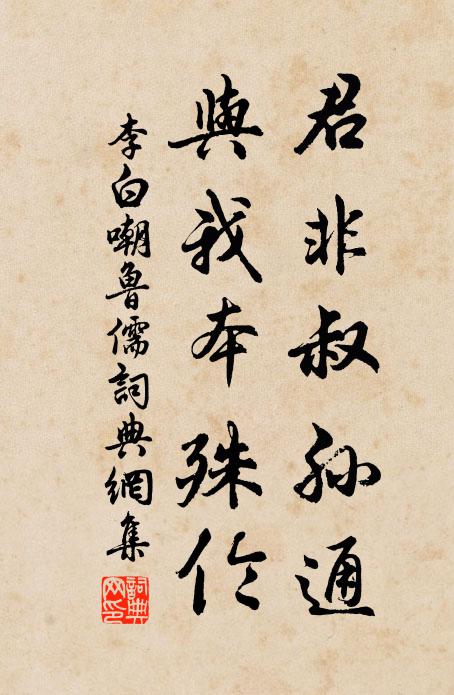 君非叔孙通
與我本殊倫
李白嘲魯儒詞典網集
詞典網印